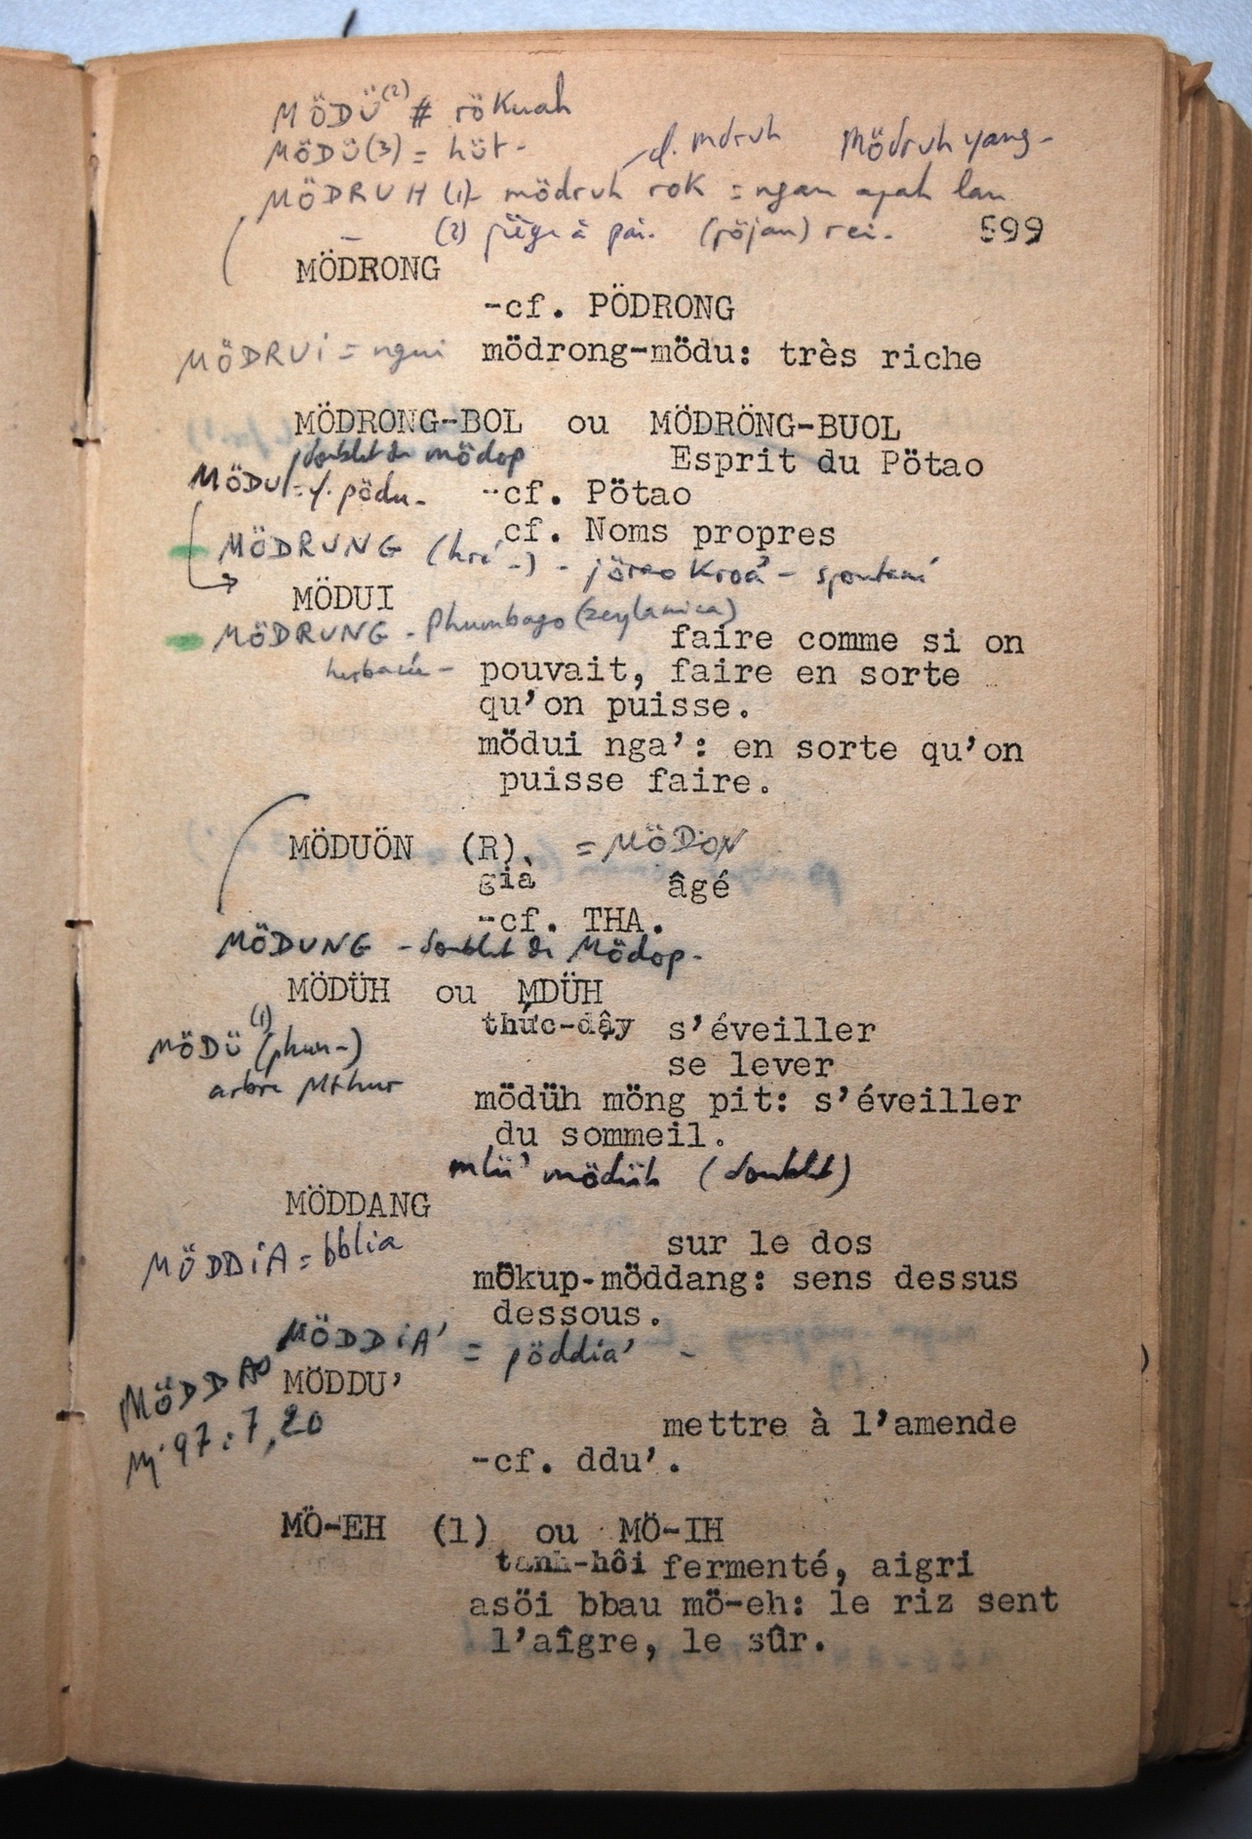 MÖDÜ (2) # rökuah
MÖDÜ (3) = hüt -
cf. mdruh Mödruh yang -
MÖDRUH (1) mödruh rok = ngan apah lan
(2) piège à (pöjan) rei.
599
MÖDRONG
-cf. PÖDRONG
MÖDRUi = ngui mödrong-mödu: très riche
MÖDRONG-BOL ou MÖDRÖNG-BUOL
doublet de mödop Esprit du Pötao
MÖDU = pödu - -cf. Pötao
cf. Noms propres
MÖDRUNG (hré -) - jörao Kroa' - spontané
MÖDUI
MÖDRUNG - Phumbago (zeylanica)
faire comme si on
herbacée - pouvait, faire en sorte
qu'on puisse.
mödui nga': en sorte qu'on
puisse faire.
MÖDUÖN (R). = MÖDON
già âgé
-cf. THA.
MÖDUNG - doublet de Mödop -
MÖDÜH ou MDÜH
thức-dậy s'éveiller
MÖDÜ (1) (phun -) se lever
arbre Mthur
mödüh möng pit: s'éveiller
du sommeil.
mlü' mödüh (doublet)
MÖDDANG
MÖDDiA = bblia
sur le dos
mökup-möddang: sens dessus
dessous.
MÖDDiA' = pöddia' -
MÖDDAO
MÖDDU'
97:7,20
mettre à l'amende
-cf. ddu'.
MÖ-EH (1) ou MÖ-IH
tanh-hôi fermenté, aigri
asöi bbau mö-eh: le riz sent
l'aîgre, le sûr.